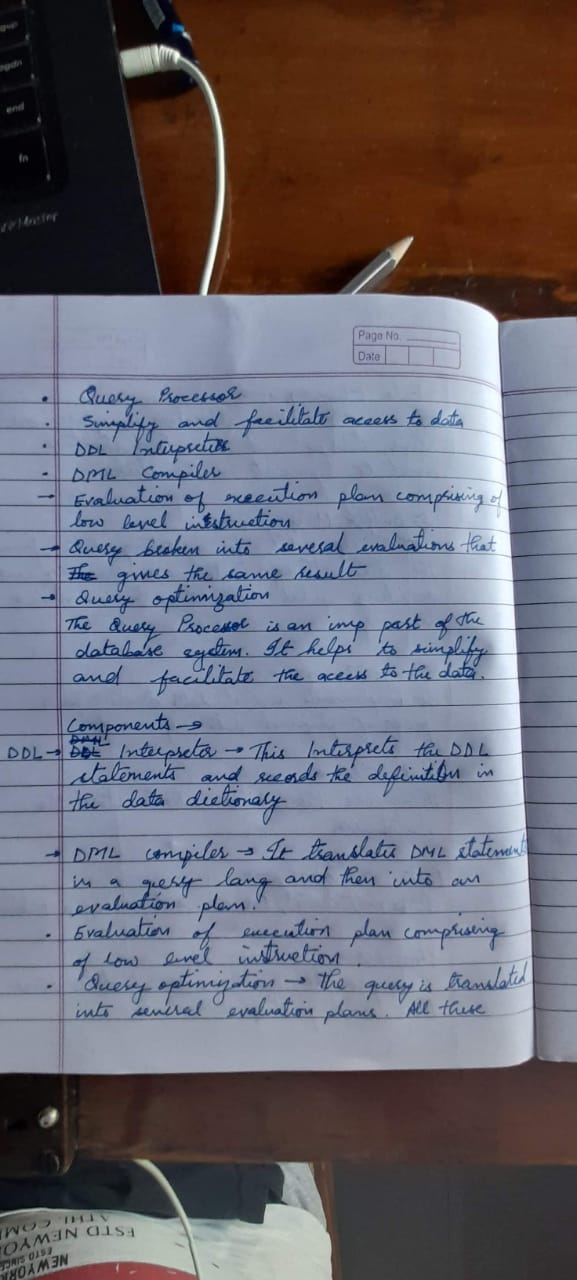 end
fn
Page No.
Date
• Query Processor
• Simplify and facilitate access to data
• DDL Interpreter
- DML Compiler
→ Evaluation of execution plan comprising of
low level instruction
→ Query broken into several evaluations that
gives the same result
→ Query optimization
The Query Processor is an imp part of the
database system. It helps to simplify
and facilitate the access to the data.
Components →
DDL → Interpretor → This Interprets the DDL
statements and records the definition in
the data dictionary
→ DML compiler → It translates DML statement
in a query lang and then into an
evaluation plan.
• Evaluation of execution plan comprising
of low level instruction.
• Query optimization → The query is translated
into several evaluation plans. All these
ESTD NEW YORK
NEW YORK